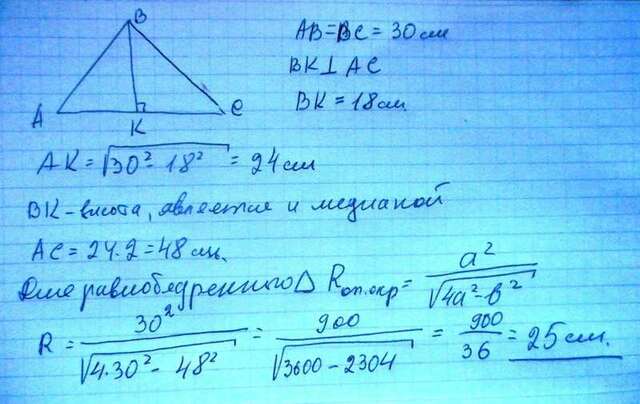 B
A
K
C
AB=BC=30см
BK⊥AC
BK=18см
AK=√(30²-18²)=24см
BK-высота, является и медианой
AC=24·2=48см.
Для равнобедренного Δ Rоп.окр=a²/√(4a²-b²)
R=30²/√(4·30²-48²)=900/√(3600-2304)=900/36=25см.